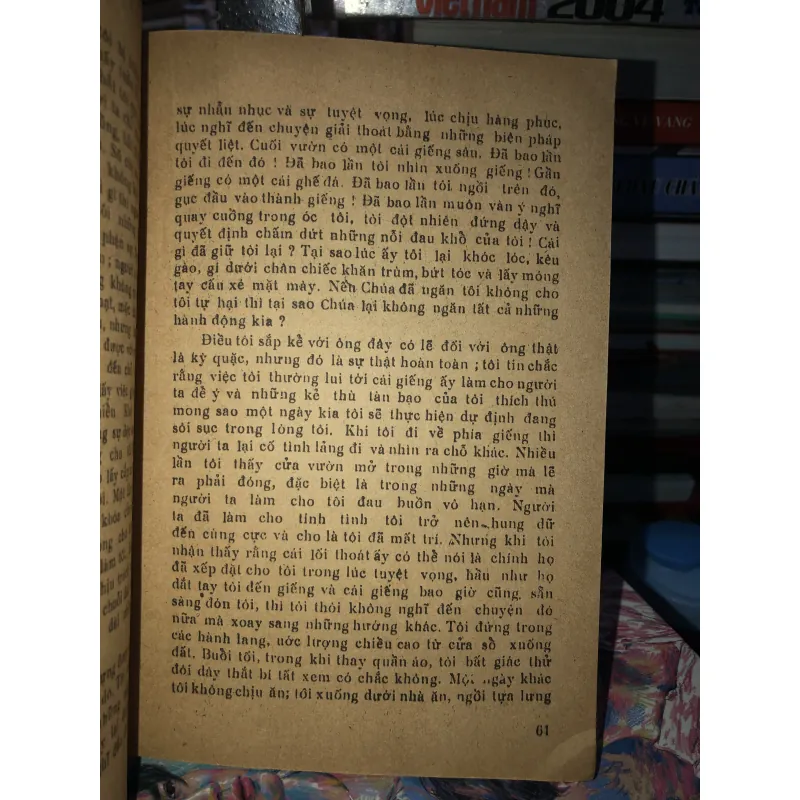 vietnam 2004
sự nhẫn nhục và sự tuyệt vọng, lúc chịu hàng phục,
lúc nghĩ đến chuyện giải thoát bằng những biện pháp
quyết liệt. Cuối vườn có một cái giếng sâu. Đã bao lần
tôi đi đến đó ! Đã bao lần tôi nhìn xuống giếng ! Gần
giếng có một cái ghế đá. Đã bao lần tôi ngồi trên đó,
gục đầu vào thành giếng ! Đã bao lần muôn vàn ý nghĩ
quay cuồng trong óc tôi, tôi đột nhiên đứng dậy và
quyết định chấm dứt những nỗi đau khổ của tôi ! Cái
gì đã giữ tôi lại ? Tại sao lúc ấy tôi lại khóc lóc, kêu
gào, gì dưới chân chiếc khăn trùm, bứt tóc và lấy móng
tay cấu xé mặt mày. Nếu Chúa đã ngăn tôi không cho
tôi tự hại thì tại sao Chúa lại không ngăn tất cả những
hành động kia ?
Điều tôi sắp kể với ông đây có lẽ đối với ông thật
là kỳ quặc, nhưng đó là sự thật hoàn toàn ; tôi tin chắc
rằng việc tôi thường lui tới cái giếng ấy làm cho người
ta để ý và những kẻ thù tàn bạo của tôi thích thú
mong sao một ngày kia tôi sẽ thực hiện dự định đang
sôi sục trong lòng tôi. Khi tôi đi về phía giếng thì
người ta lại cố tình lảng đi và nhìn ra chỗ khác. Nhiều
lần tôi thấy cửa vườn mở trong những giờ mà lẽ
ra phải đóng, đặc biệt là trong những ngày mà
người ta làm cho tôi đau buồn vô hạn. Người
ta đã làm cho tính tình tôi trở nên hung dữ
đến cùng cực và cho là tôi đã mất trí. Nhưng khi tôi
nhận thấy rằng cái lối thoát ấy có thể nói là chính họ
đã xếp đặt cho tôi trong lúc tuyệt vọng, hầu như họ
dắt tay tôi đến giếng và cái giếng bao giờ cũng sẵn
sàng đón tôi, thì tôi thôi không nghĩ đến chuyện đó
nữa mà xoay sang những hướng khác. Tôi đứng trong
các hành lang, ước lượng chiều cao từ cửa sổ xuống
đất. Buổi tối, trong khi thay quần áo, tôi bất giác thử
đôi dây thắt bí tất xem có chắc không. Một ngày khác
tôi không chịu ăn; tôi xuống dưới nhà ăn, ngồi tựa lưng
61